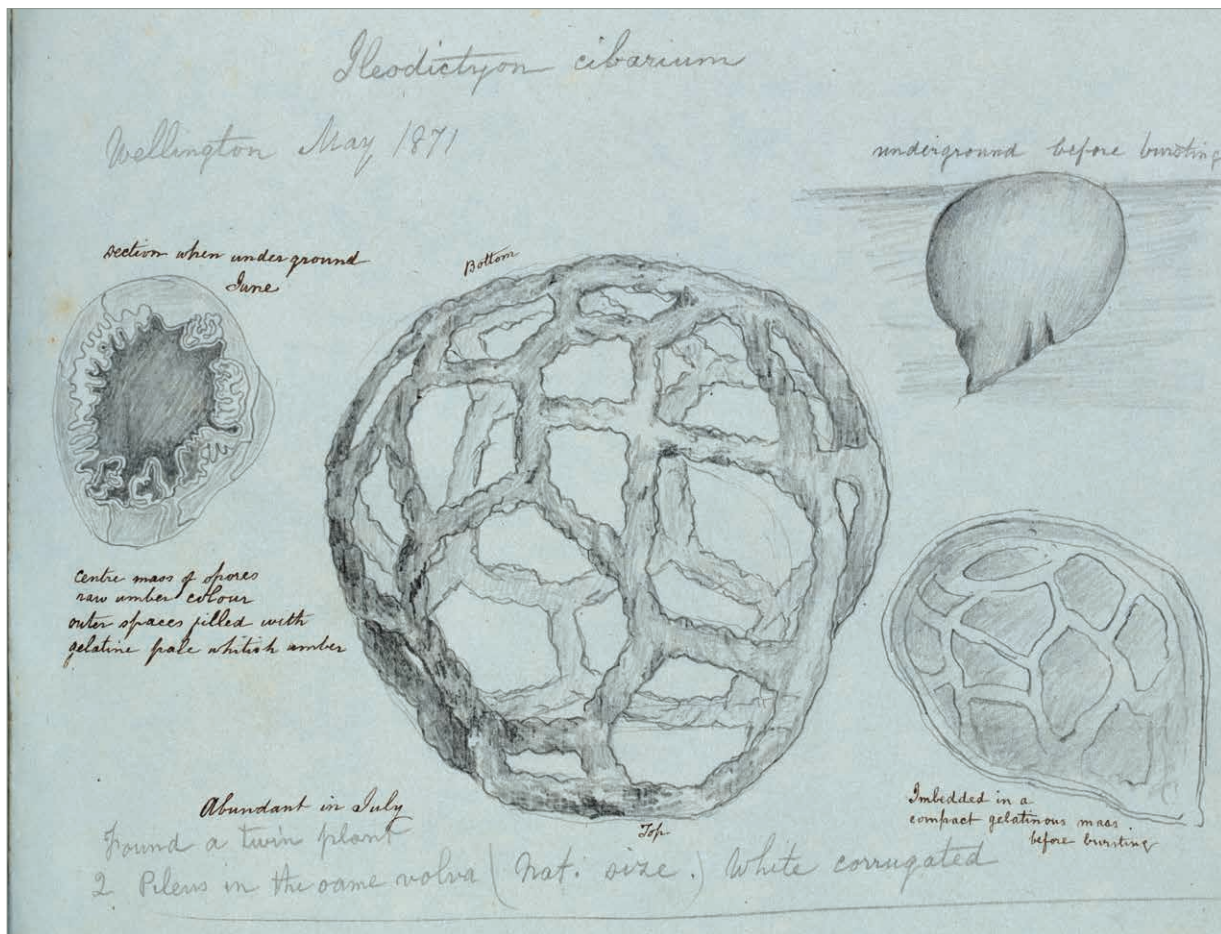 Ileodictyon cibarium
Wellington May 1871
underground before bursting
section when under ground
June
Bottom
centre mass of spores
raw umber colour
outer spaces filled with
gelatine pale whitish umber
Imbedded in a
compact gelatinous mass
before bursting
Abundant in July
Top
Found a twin plant
2 Pileus in the same volva (Nat. size.) White corrugated